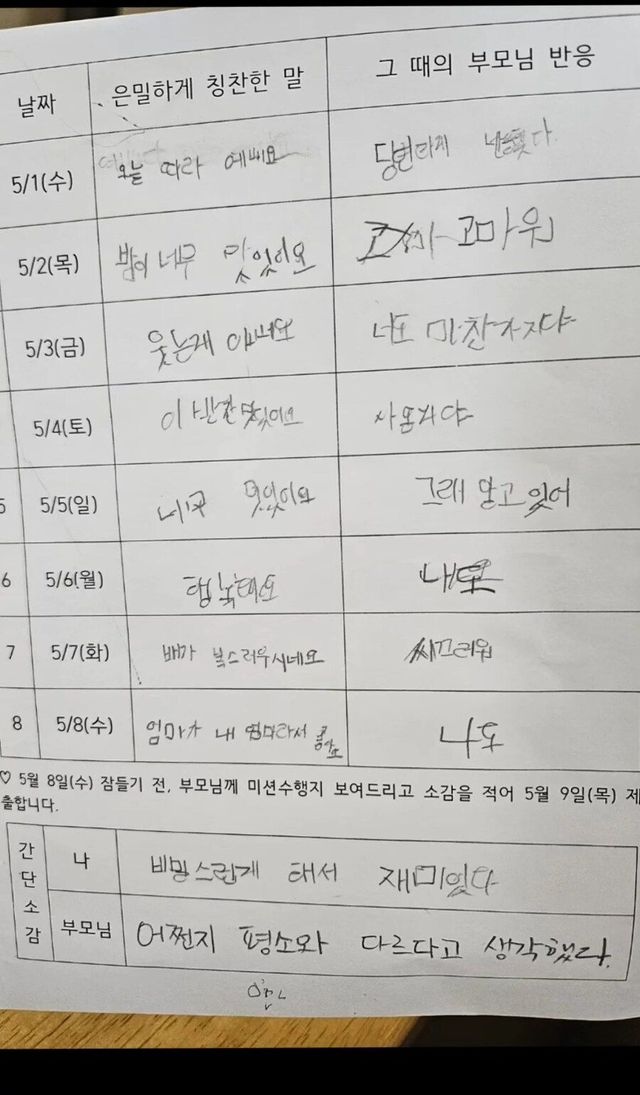 날짜 은밀하게 칭찬한 말 그 때의 부모님 반응
5/1(수) 오늘 따라 예뻐요 당연하지
5/2(목) 밥이 너무 맛있어요 고마워
5/3(금) 웃는게 너도 마찬가지야
5/4(토) 이 반찬 맛있어요
5 5/5(일) 멋있어요 그래 알고 있어
6 5/6(월)
7 5/7(화) 배가 복스러우시네요 씨끄러워
8 5/8(수) 엄마가 내 엄마라서 좋아요 나도
♡ 5월 8일(수) 잠들기 전, 부모님께 미션수행지 보여드리고 소감을 적어 5월 9일(목) 제
출합니다.
간단소감
나 비밀스럽게 해서 재미있다
부모님 어쩐지 평소와 다르다고 생각했다.